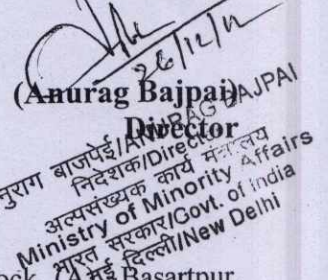 26/12/12
(Anurag Bajpai)
Director
अनुराग बाजपेई/ANURAG BAJPAI
निदेशक/Director
अल्पसंख्यक कार्य मंत्रालय
Ministry of Minority Affairs
भारत सरकार/Govt. of India
नई दिल्ली/New Delhi
Basartpur